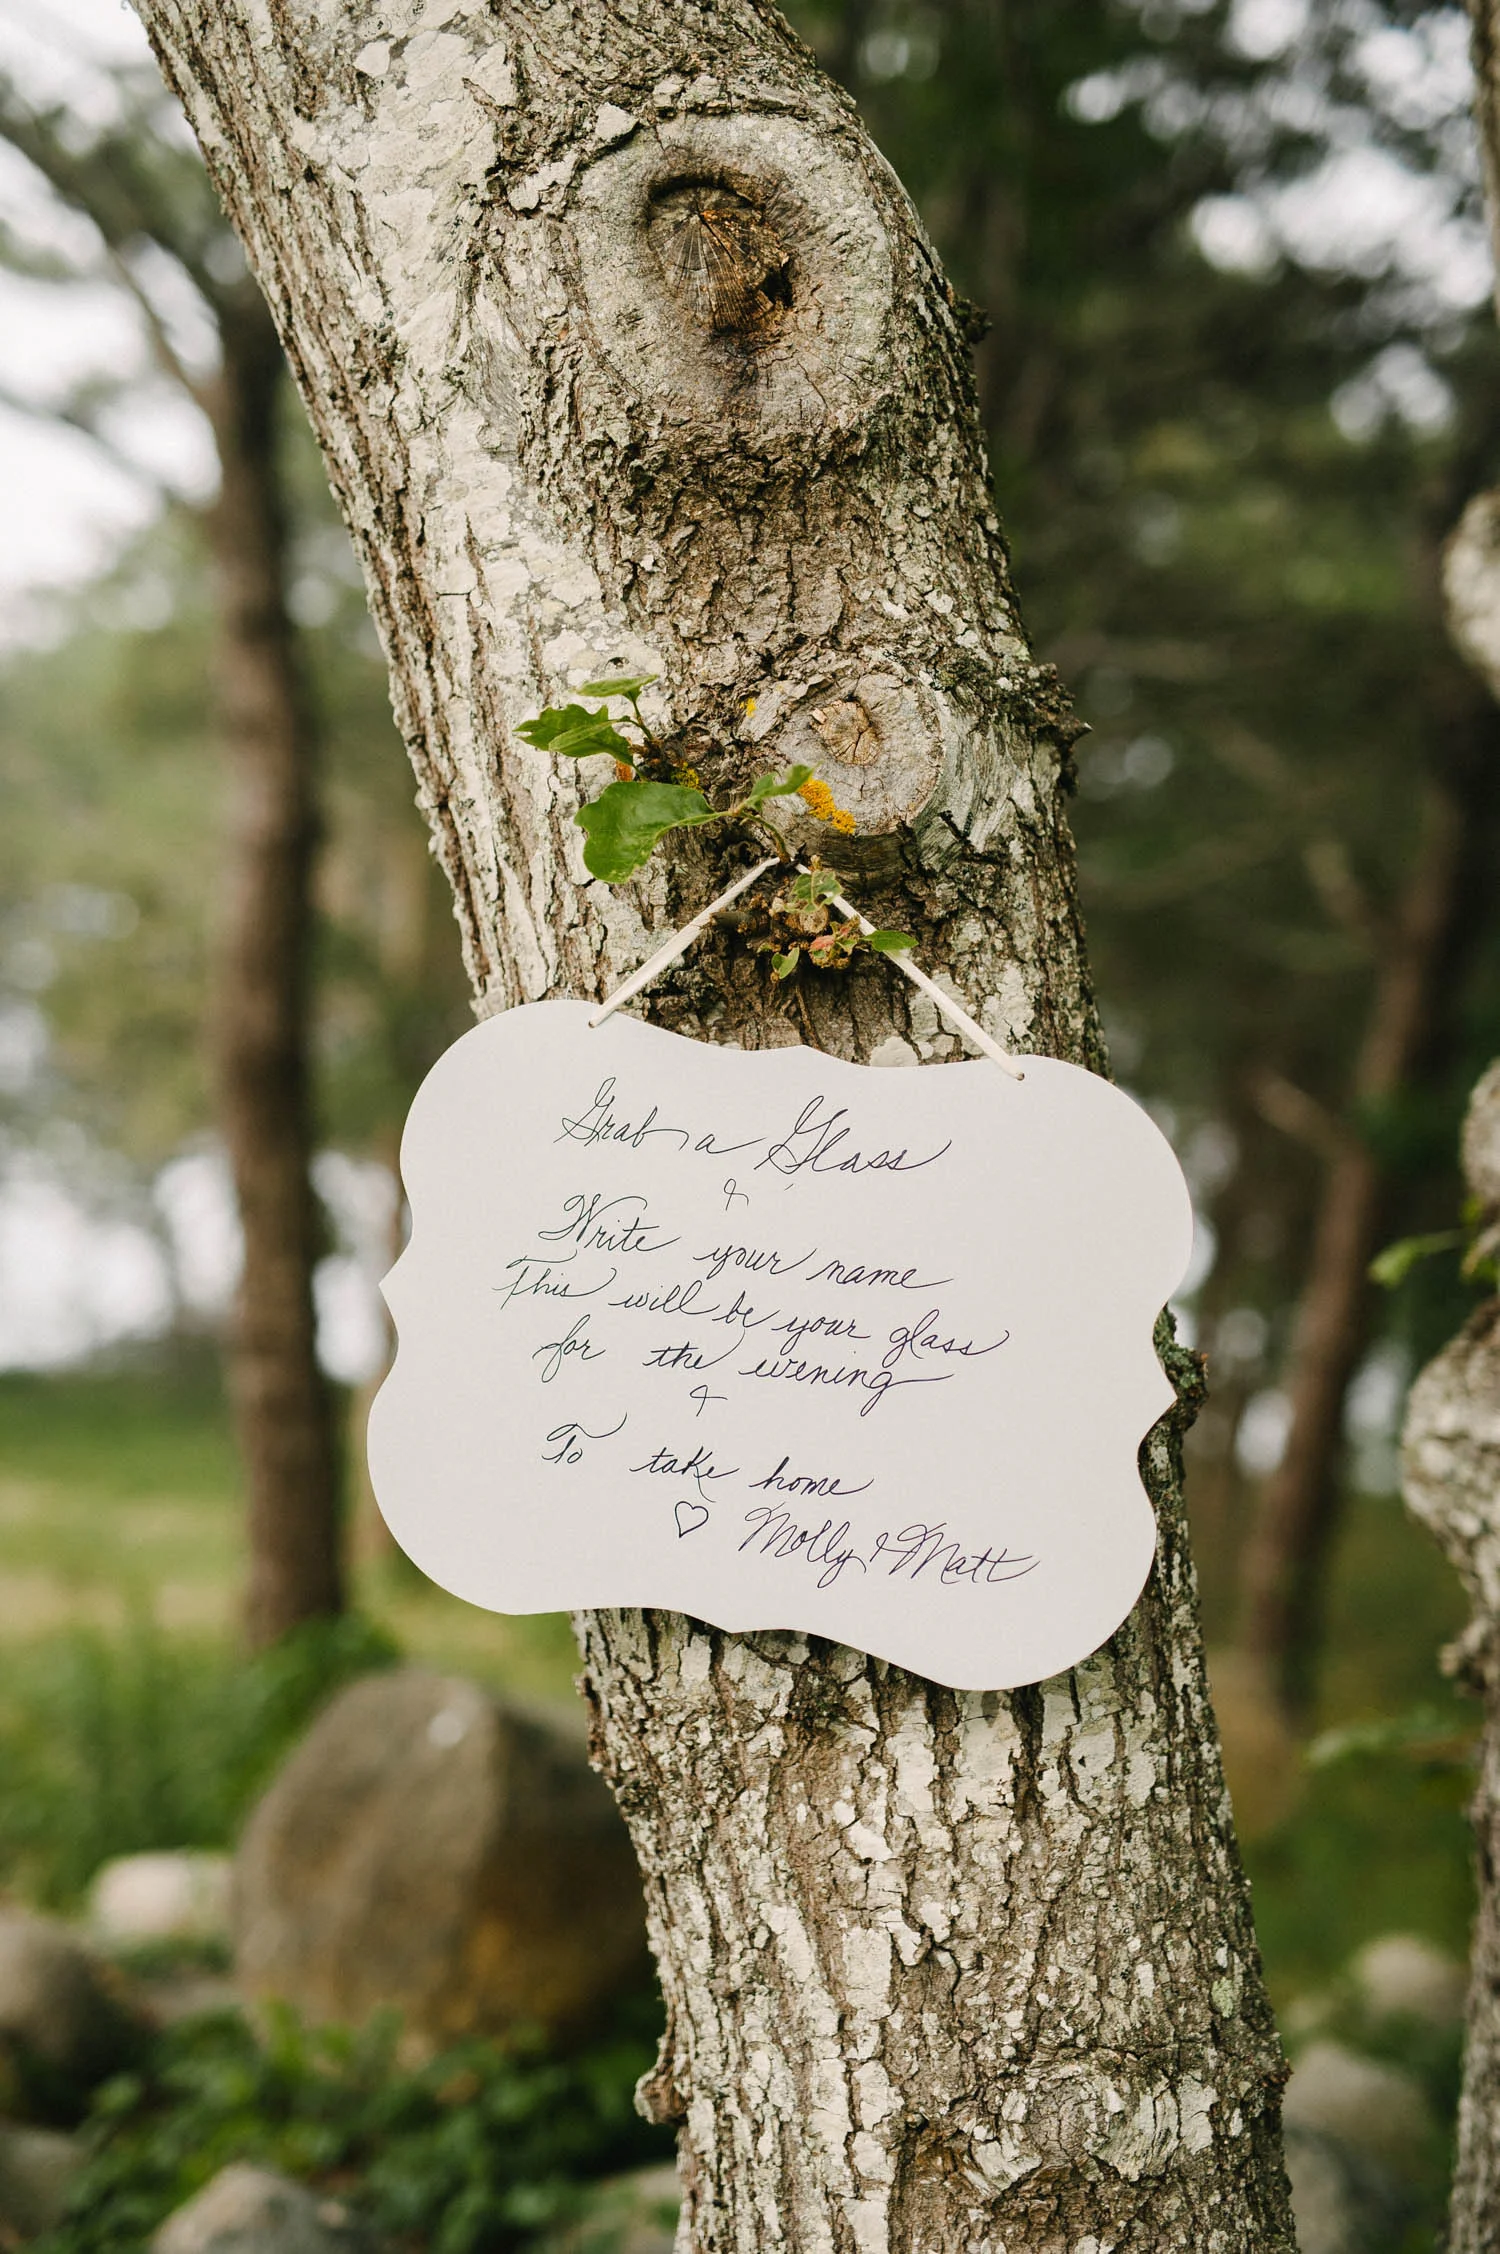 Grab a Glass
&
Write your name
This will be your glass
for the evening
&
To take home
♡ Molly & Matt